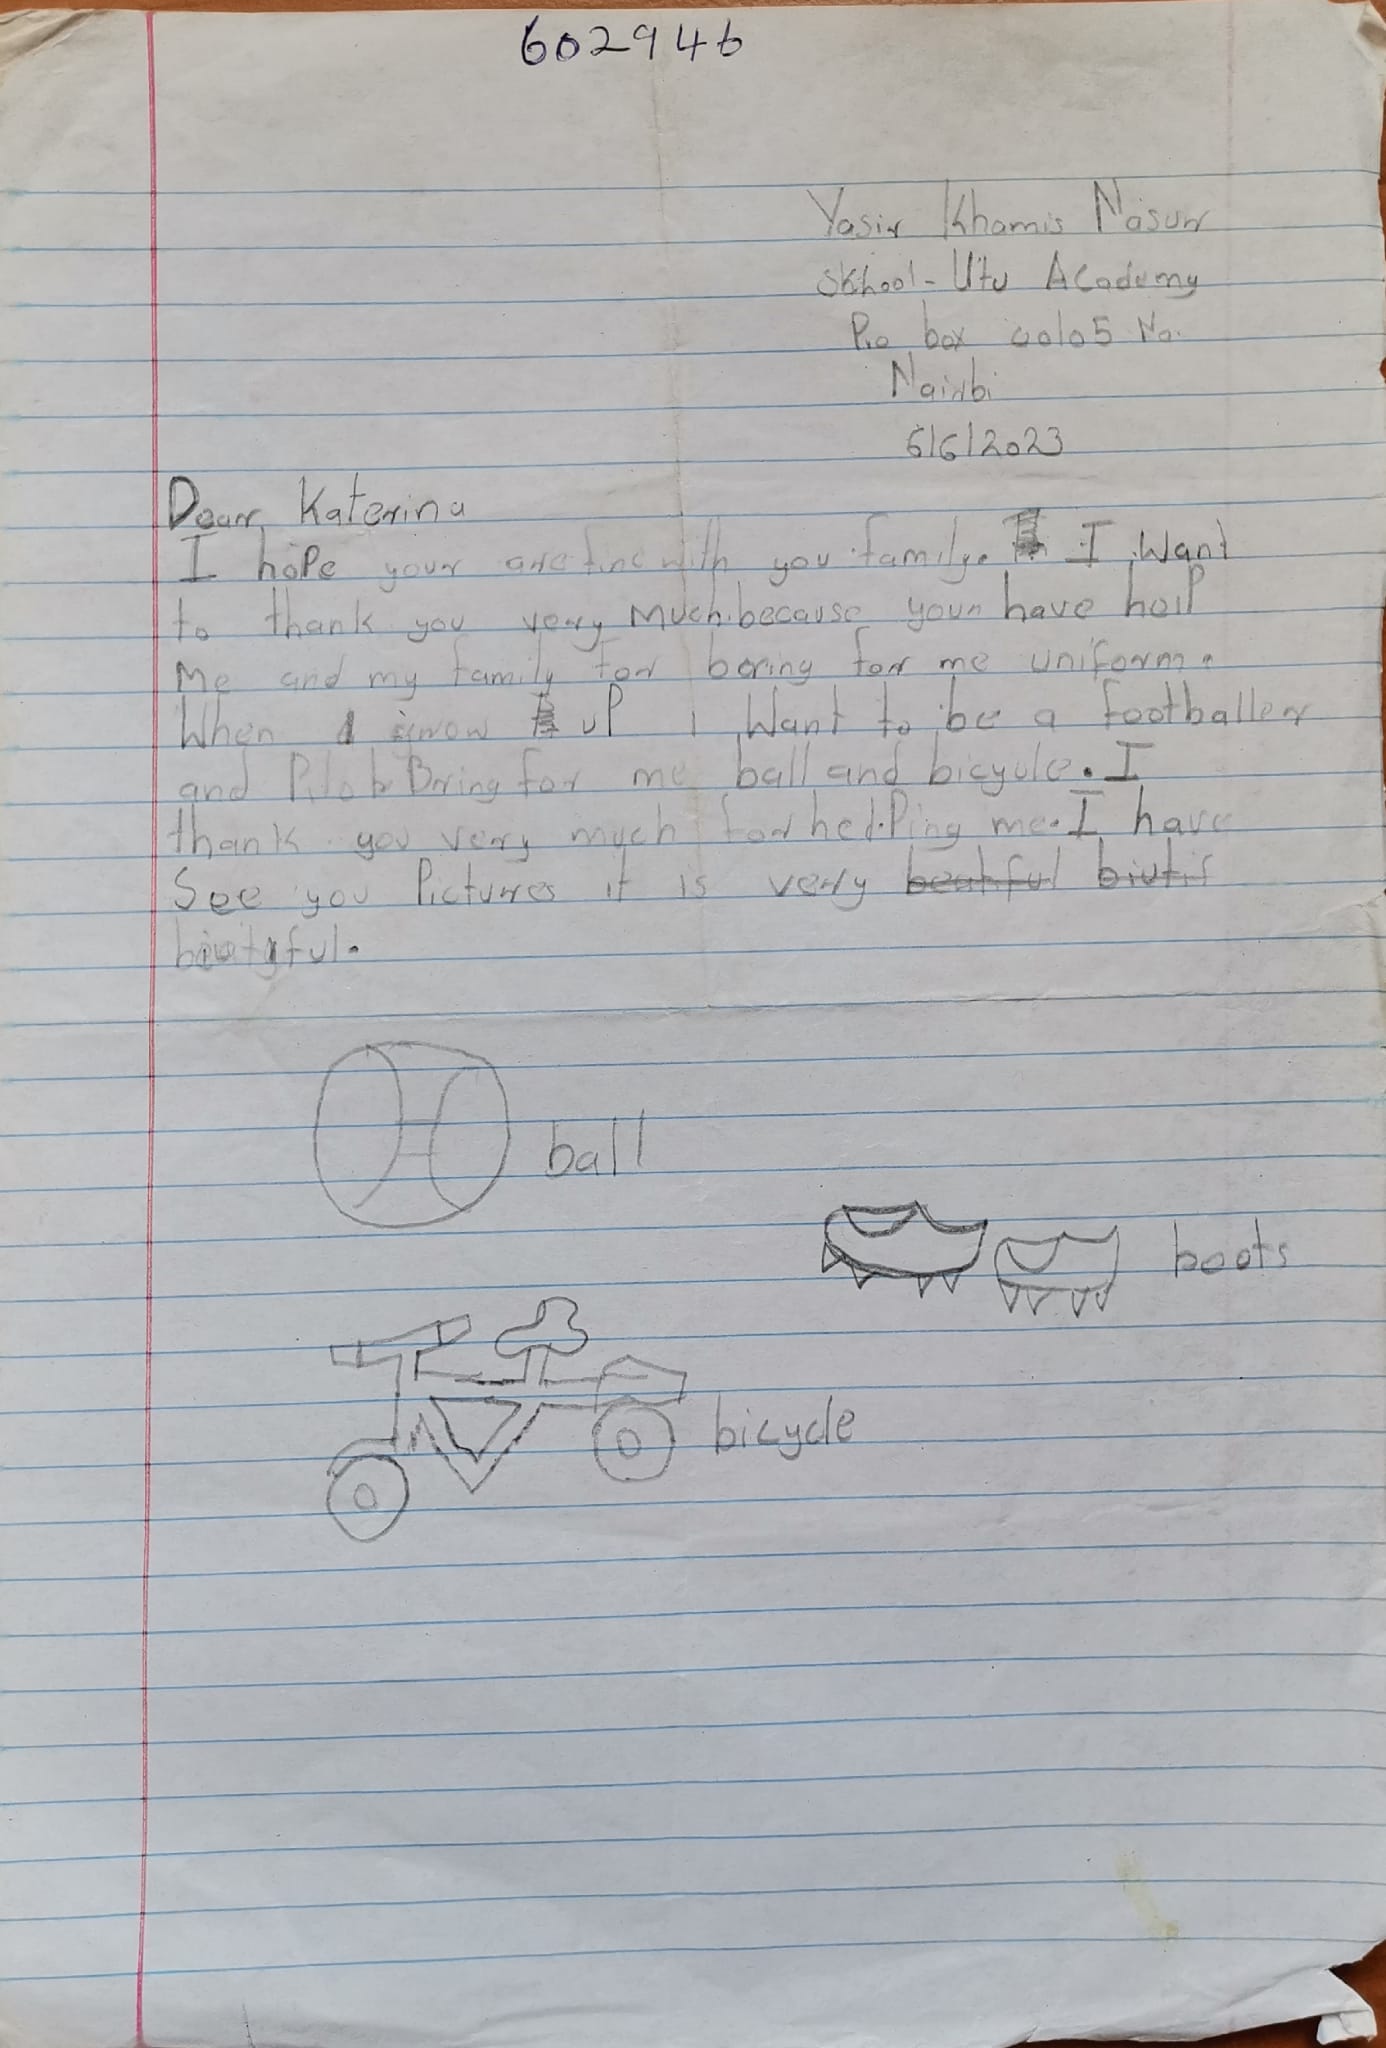 602946
Yasir Khamis Nasur
Skhool - Utu Academy
P.o box 00105 No.
Nairbi
6/6/2023
Dear, Katerina
I hope your are fine with you family. I want
to thank you very much because your have help
Me and my family for boring for me uniform.
When I grow up I want to be a footballer
and Pilot Bring for me ball and bicycle. I
thank you very much for helping me. I have
See you Pictures it is very beatiful biutif
biutyful.
ball
boots
bicycle